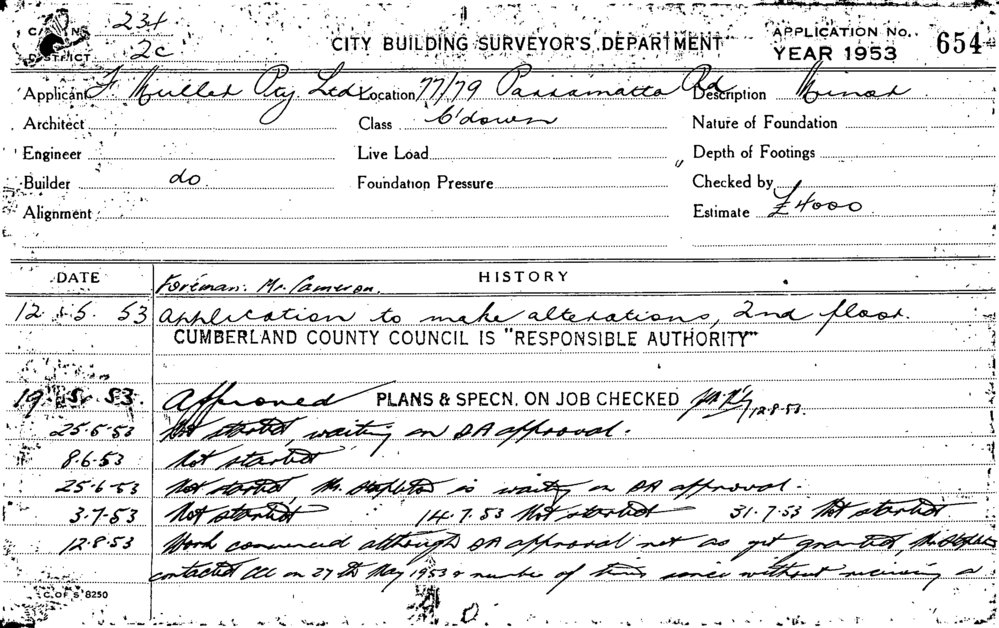 234
2c
DISTRICT
CITY BUILDING SURVEYOR'S DEPARTMENT
APPLICATION No.
YEAR 1953
654
Applicant F Muller Pty Ltd Location 77/79 Parramatta Rd Description Minor
Architect Class C'down Nature of Foundation
Engineer Live Load Depth of Footings
Builder do Foundation Pressure Checked by
Alignment Estimate £4000
DATE HISTORY
Foreman: Mr. Cameron.
12.5.53 Application to make alterations, 2nd floor.
CUMBERLAND COUNTY COUNCIL IS "RESPONSIBLE AUTHORITY"
19.5.53. Approved PLANS & SPECN. ON JOB CHECKED 12.8.53.
25.5.53 Not started, waiting on DA approval.
8.6.53 Not started
25.6.53 Not started, Mr. Stapleton is waiting on DA approval.
3.7.53 Not started 14.7.53 Not started 31.7.53 Not started
12.8.53 Work commenced although DA approval not as yet granted, Mr
contacted CCC on 27th May 1953 & number of times since without receiving a
C. OF S 8250